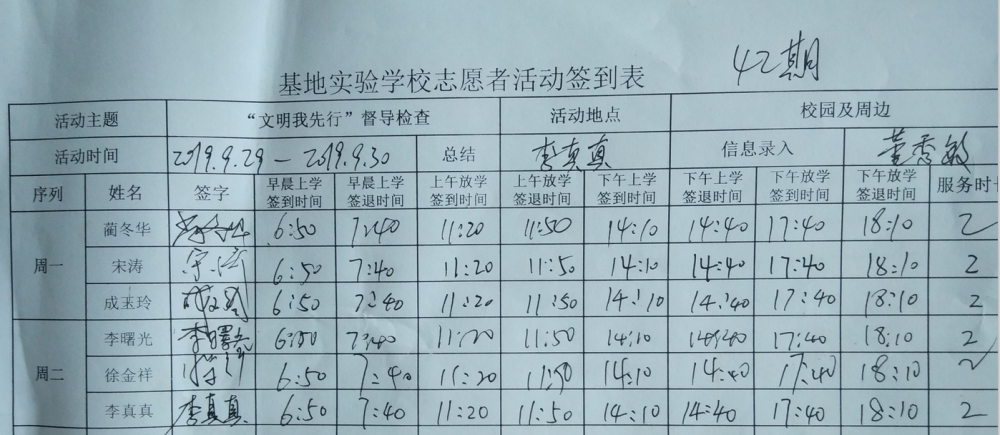 42期
基地实验学校志愿者活动签到表
活动主题 “文明我先行”督导检查 活动地点 校园及周边
活动时间 2019.9.29 — 2019.9.30 总结 李真真 信息录入 董秀敏
序列 姓名 签字 早晨上学签到时间 早晨上学签退时间 上午放学签到时间 上午放学签退时间 下午上学签到时间 下午上学签退时间 下午放学签到时间 下午放学签退时间 服务时长
周一 蔺冬华 6:50 7:40 11:20 11:50 14:10 14:40 17:40 18:10 2
宋涛 宋涛 6:50 7:40 11:20 11:50 14:10 14:40 17:40 18:10 2
成玉玲 成玉玲 6:50 7:40 11:20 11:50 14:10 14:40 17:40 18:10 2
周二 李曙光 李曙光 6:50 7:40 11:20 11:50 14:10 14:40 17:40 18:10 2
徐金祥 6:50 7:40 11:20 11:50 14:10 14:40 17:40 18:10 2
李真真 李真真 6:50 7:40 11:20 11:50 14:10 14:40 17:40 18:10 2